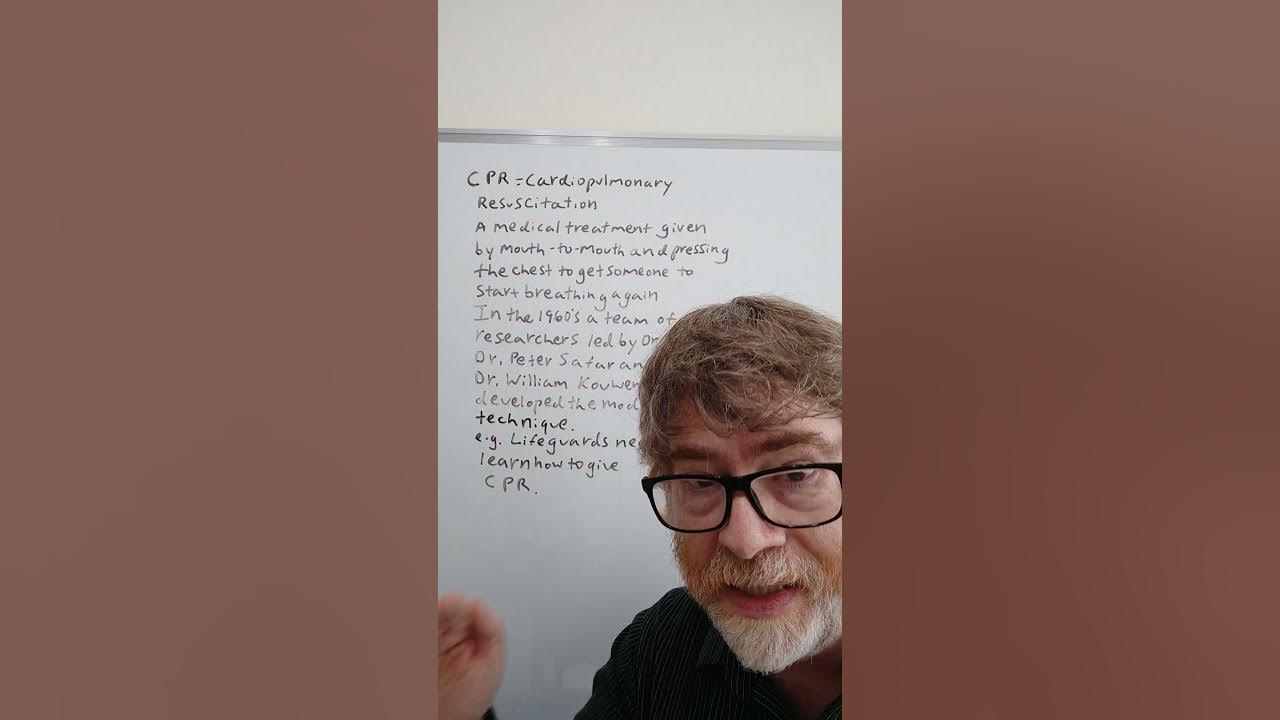 CPR = Cardiopulmonary
Resuscitation
A medical treatment given
by mouth-to-mouth and pressing
the chest to get someone to
start breathing again
In the 1960's a team of
researchers led by Dr
Dr. Peter Safar an
Dr. William Kouwen
developed the mod
technique.
e.g. Lifeguards ne
learn how to give
CPR.